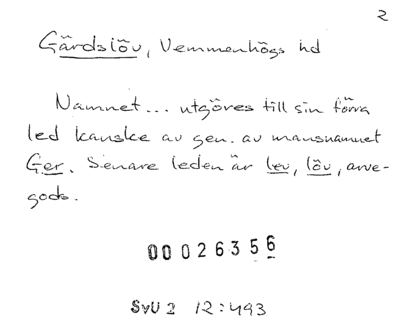 2
Gärdslöv, Vemmenhögs hd
Namnet... utgöres till sin förra
led kanske av gen. av mansnamnet
Ger. Senare leden är lev, löv, arve-
gods.
00026356
SvU 2 12:493